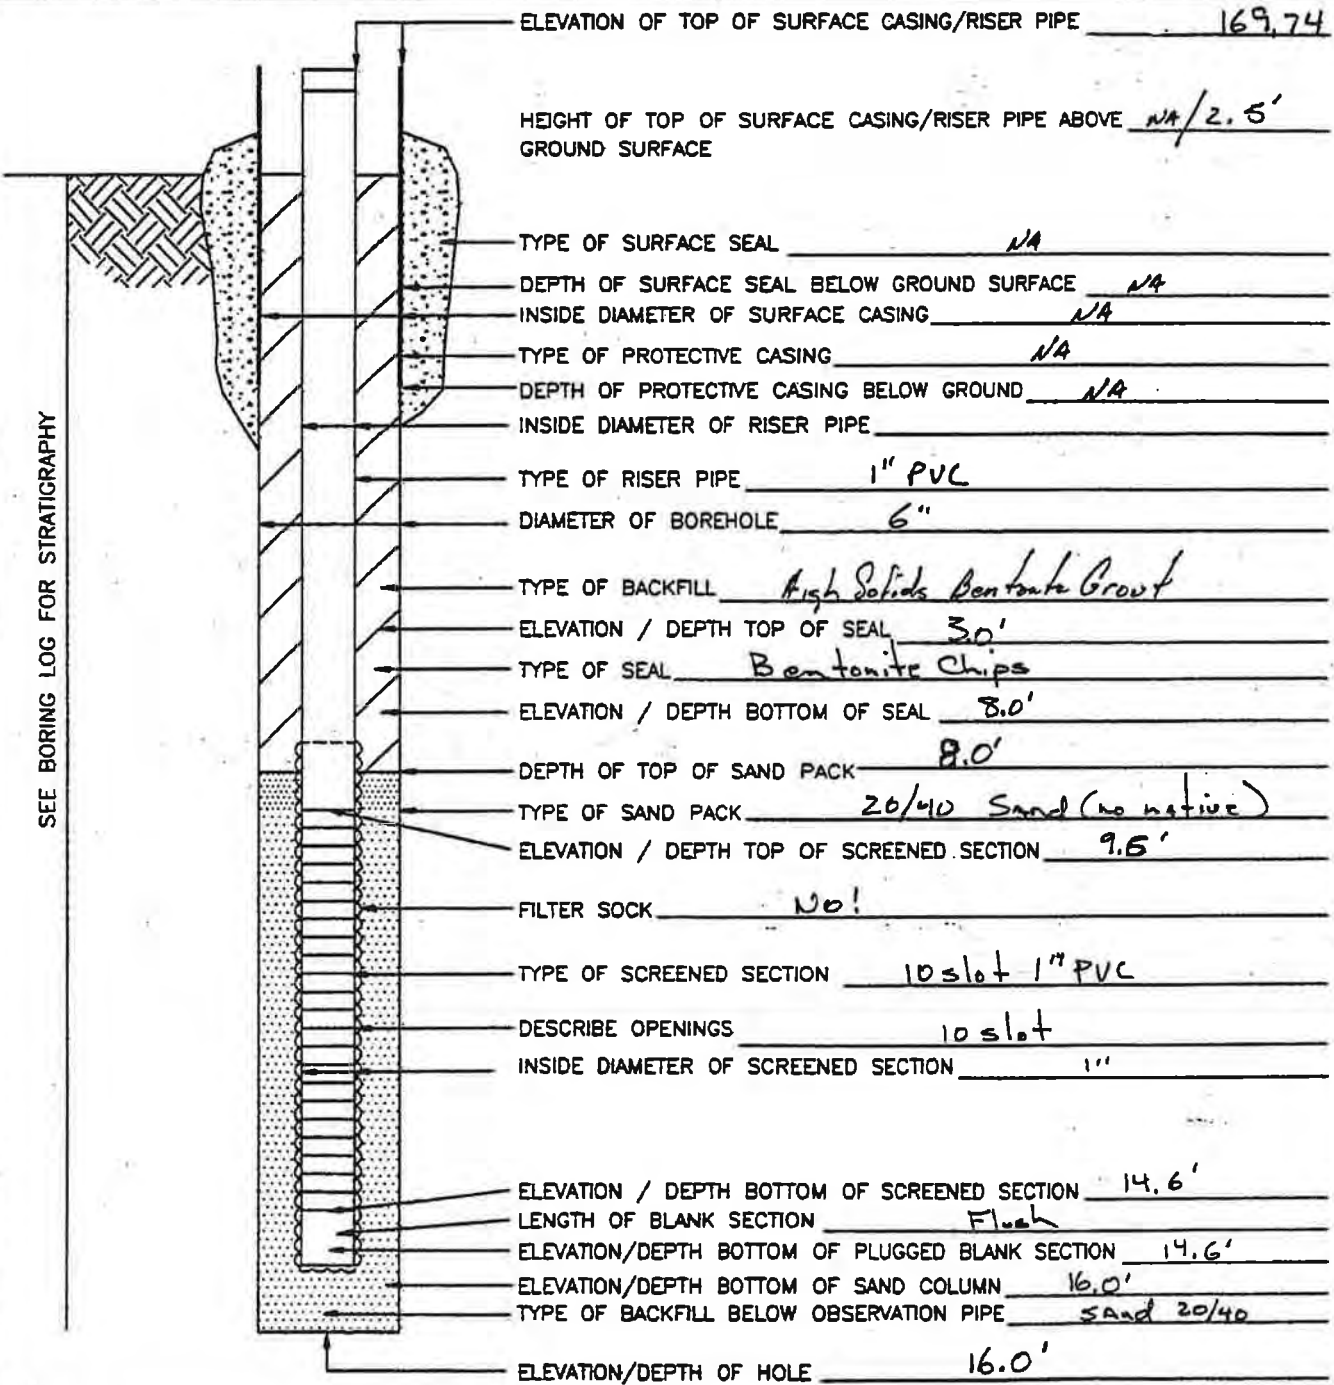 ELEVATION OF TOP OF SURFACE CASING/RISER PIPE 169.74
HEIGHT OF TOP OF SURFACE CASING/RISER PIPE ABOVE NA/2.5'
GROUND SURFACE
TYPE OF SURFACE SEAL NA
DEPTH OF SURFACE SEAL BELOW GROUND SURFACE NA
INSIDE DIAMETER OF SURFACE CASING NA
TYPE OF PROTECTIVE CASING NA
DEPTH OF PROTECTIVE CASING BELOW GROUND NA
INSIDE DIAMETER OF RISER PIPE
TYPE OF RISER PIPE 1" PVC
DIAMETER OF BOREHOLE 6"
TYPE OF BACKFILL High Solids Bentonite Grout
ELEVATION / DEPTH TOP OF SEAL 3.0'
TYPE OF SEAL Bentonite Chips
ELEVATION / DEPTH BOTTOM OF SEAL 8.0'
DEPTH OF TOP OF SAND PACK 8.0'
TYPE OF SAND PACK 20/40 Sand (no native)
ELEVATION / DEPTH TOP OF SCREENED SECTION 9.6'
FILTER SOCK No!
TYPE OF SCREENED SECTION 10 slot 1" PVC
DESCRIBE OPENINGS 10 slot
INSIDE DIAMETER OF SCREENED SECTION 1"
ELEVATION / DEPTH BOTTOM OF SCREENED SECTION 14.6'
LENGTH OF BLANK SECTION Flush
ELEVATION/DEPTH BOTTOM OF PLUGGED BLANK SECTION 14.6'
ELEVATION/DEPTH BOTTOM OF SAND COLUMN 16.0'
TYPE OF BACKFILL BELOW OBSERVATION PIPE SAnd 20/40
ELEVATION/DEPTH OF HOLE 16.0'
SEE BORING LOG FOR STRATIGRAPHY